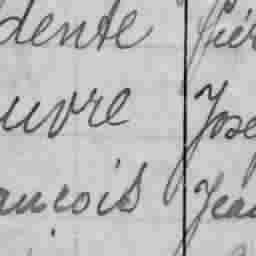 dente Pier
uvre Jose
ancois Jean